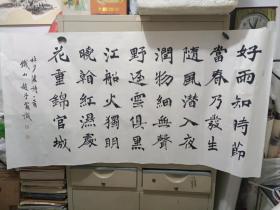 好雨知時節
當春乃發生
隨風潛入夜
潤物細無聲
野逕雲俱黑
江船火獨明
曉看紅濕處
花重錦官城